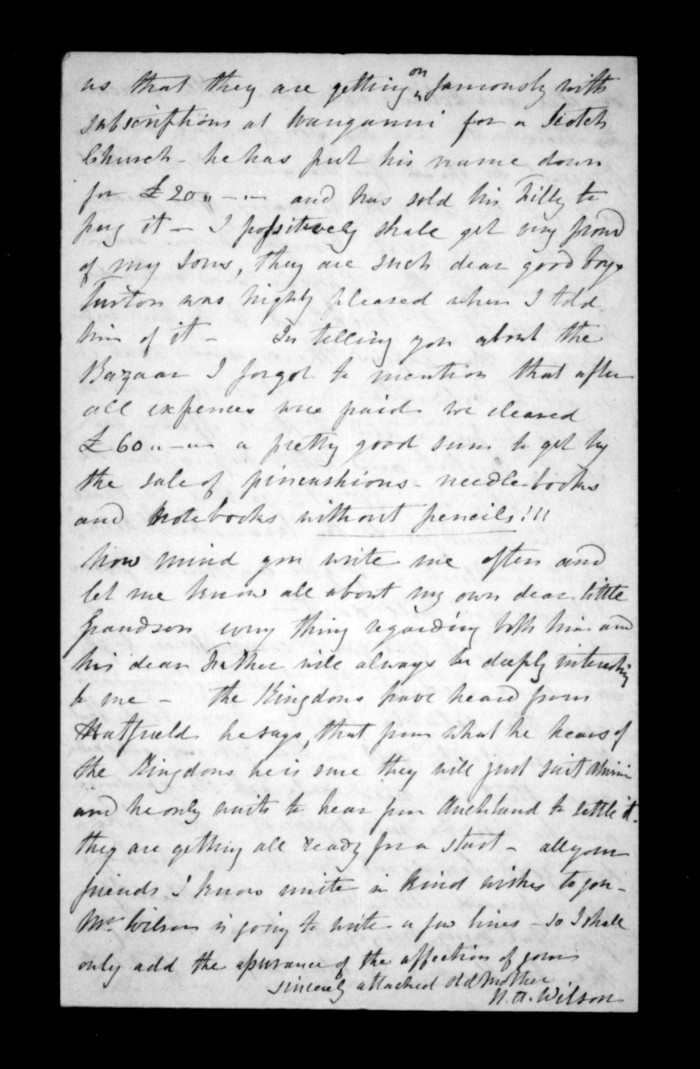 us that they are getting on famously with
subscriptions at Wanganui for a Scotch
Church - he has put his name down
for £20,,-,,- and has sold his Filly to
pay it - I positively shall get very proud
of my sons, they are such dear good boys
Turton was highly pleased when I told
him of it - In telling you about the
Bazaar I forgot to mention that after
all expences were paid we cleared
£60,,-,,- a pretty good sum to get by
the sale of pincushions - needle-books
and notebooks without pencils!!!
Now mind you write me often and
let me know all about my own dear little
Grandson every thing regarding both him and
his dear Father will always be deeply interesting
to me - the Kingdons have heard from
Hatfield he says, that from what he hears of
the Kingdons he is sure they will just suit
and he only waits to hear from Auckland to settle it.
they are getting all ready for a start - all your
friends I know unite in kind wishes to you -
Mr Wilson is going to write a few lines - so I shall
only add the assurance of the affection of your
sincerely attached old Mother
Wilson